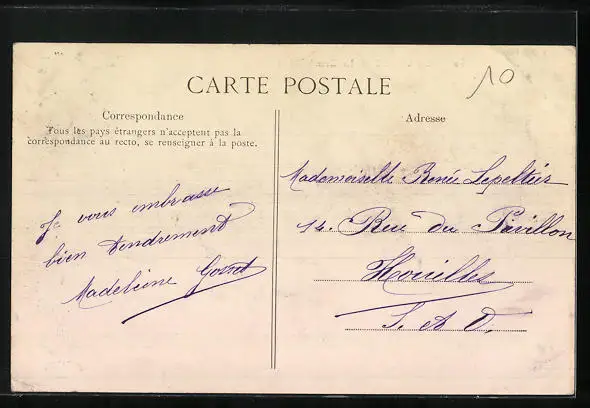 10
CARTE POSTALE
Correspondance
Tous les pays étrangers n'acceptent pas la
correspondance au recto, se renseigner à la poste.
Je vous embrasse
bien tendrement
Madeleine
Adresse
Mademoiselle Renée Lepeltier
14. Rue du Pavillon
Houilles
S. et O.